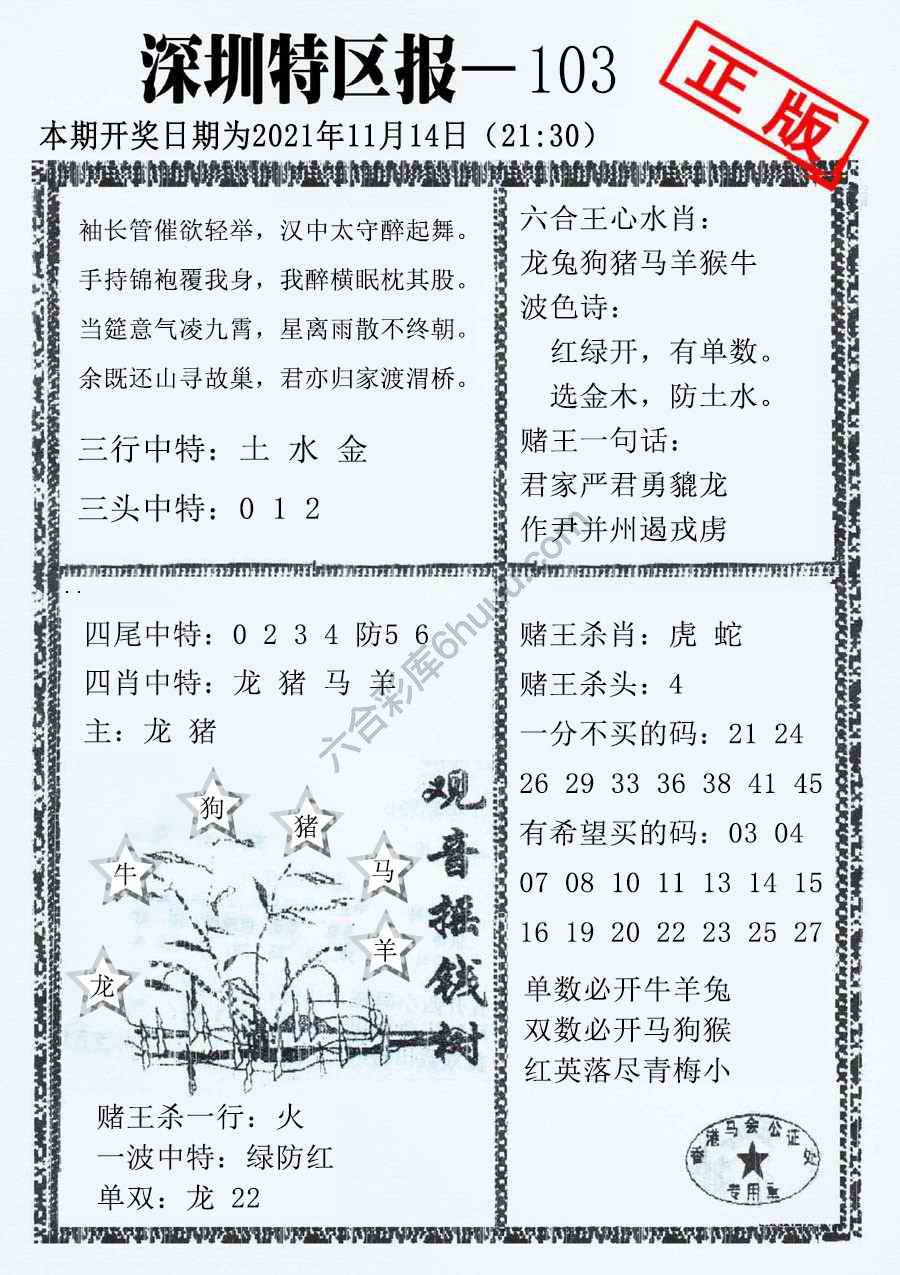 深圳特区报—103
正版
本期开奖日期为2021年11月14日（21:30）
袖长管催欲轻举，汉中太守醉起舞。
手持锦袍覆我身，我醉横眠枕其股。
当筵意气凌九霄，星离雨散不终朝。
余既还山寻故巢，君亦归家渡渭桥。
三行中特：土 水 金
三头中特：0 1 2
六合王心水肖：
龙兔狗猪马羊猴牛
波色诗：
红绿开，有单数。
选金木，防土水。
赌王一句话：
君家严君勇貔龙
作尹并州遏戎虏
..
四尾中特：0 2 3 4 防5 6
四肖中特：龙 猪 马 羊
主：龙 猪
狗
猪
牛
马
羊
龙
观音摇钱树
赌王杀一行：火
一波中特：绿防红
单双：龙 22
赌王杀肖：虎 蛇
赌王杀头：4
一分不买的码：21 24
26 29 33 36 38 41 45
有希望买的码：03 04
07 08 10 11 13 14 15
16 19 20 22 23 25 27
单数必开牛羊兔
双数必开马狗猴
红英落尽青梅小
香港马会公证处
专用章
六合彩库6huku.com